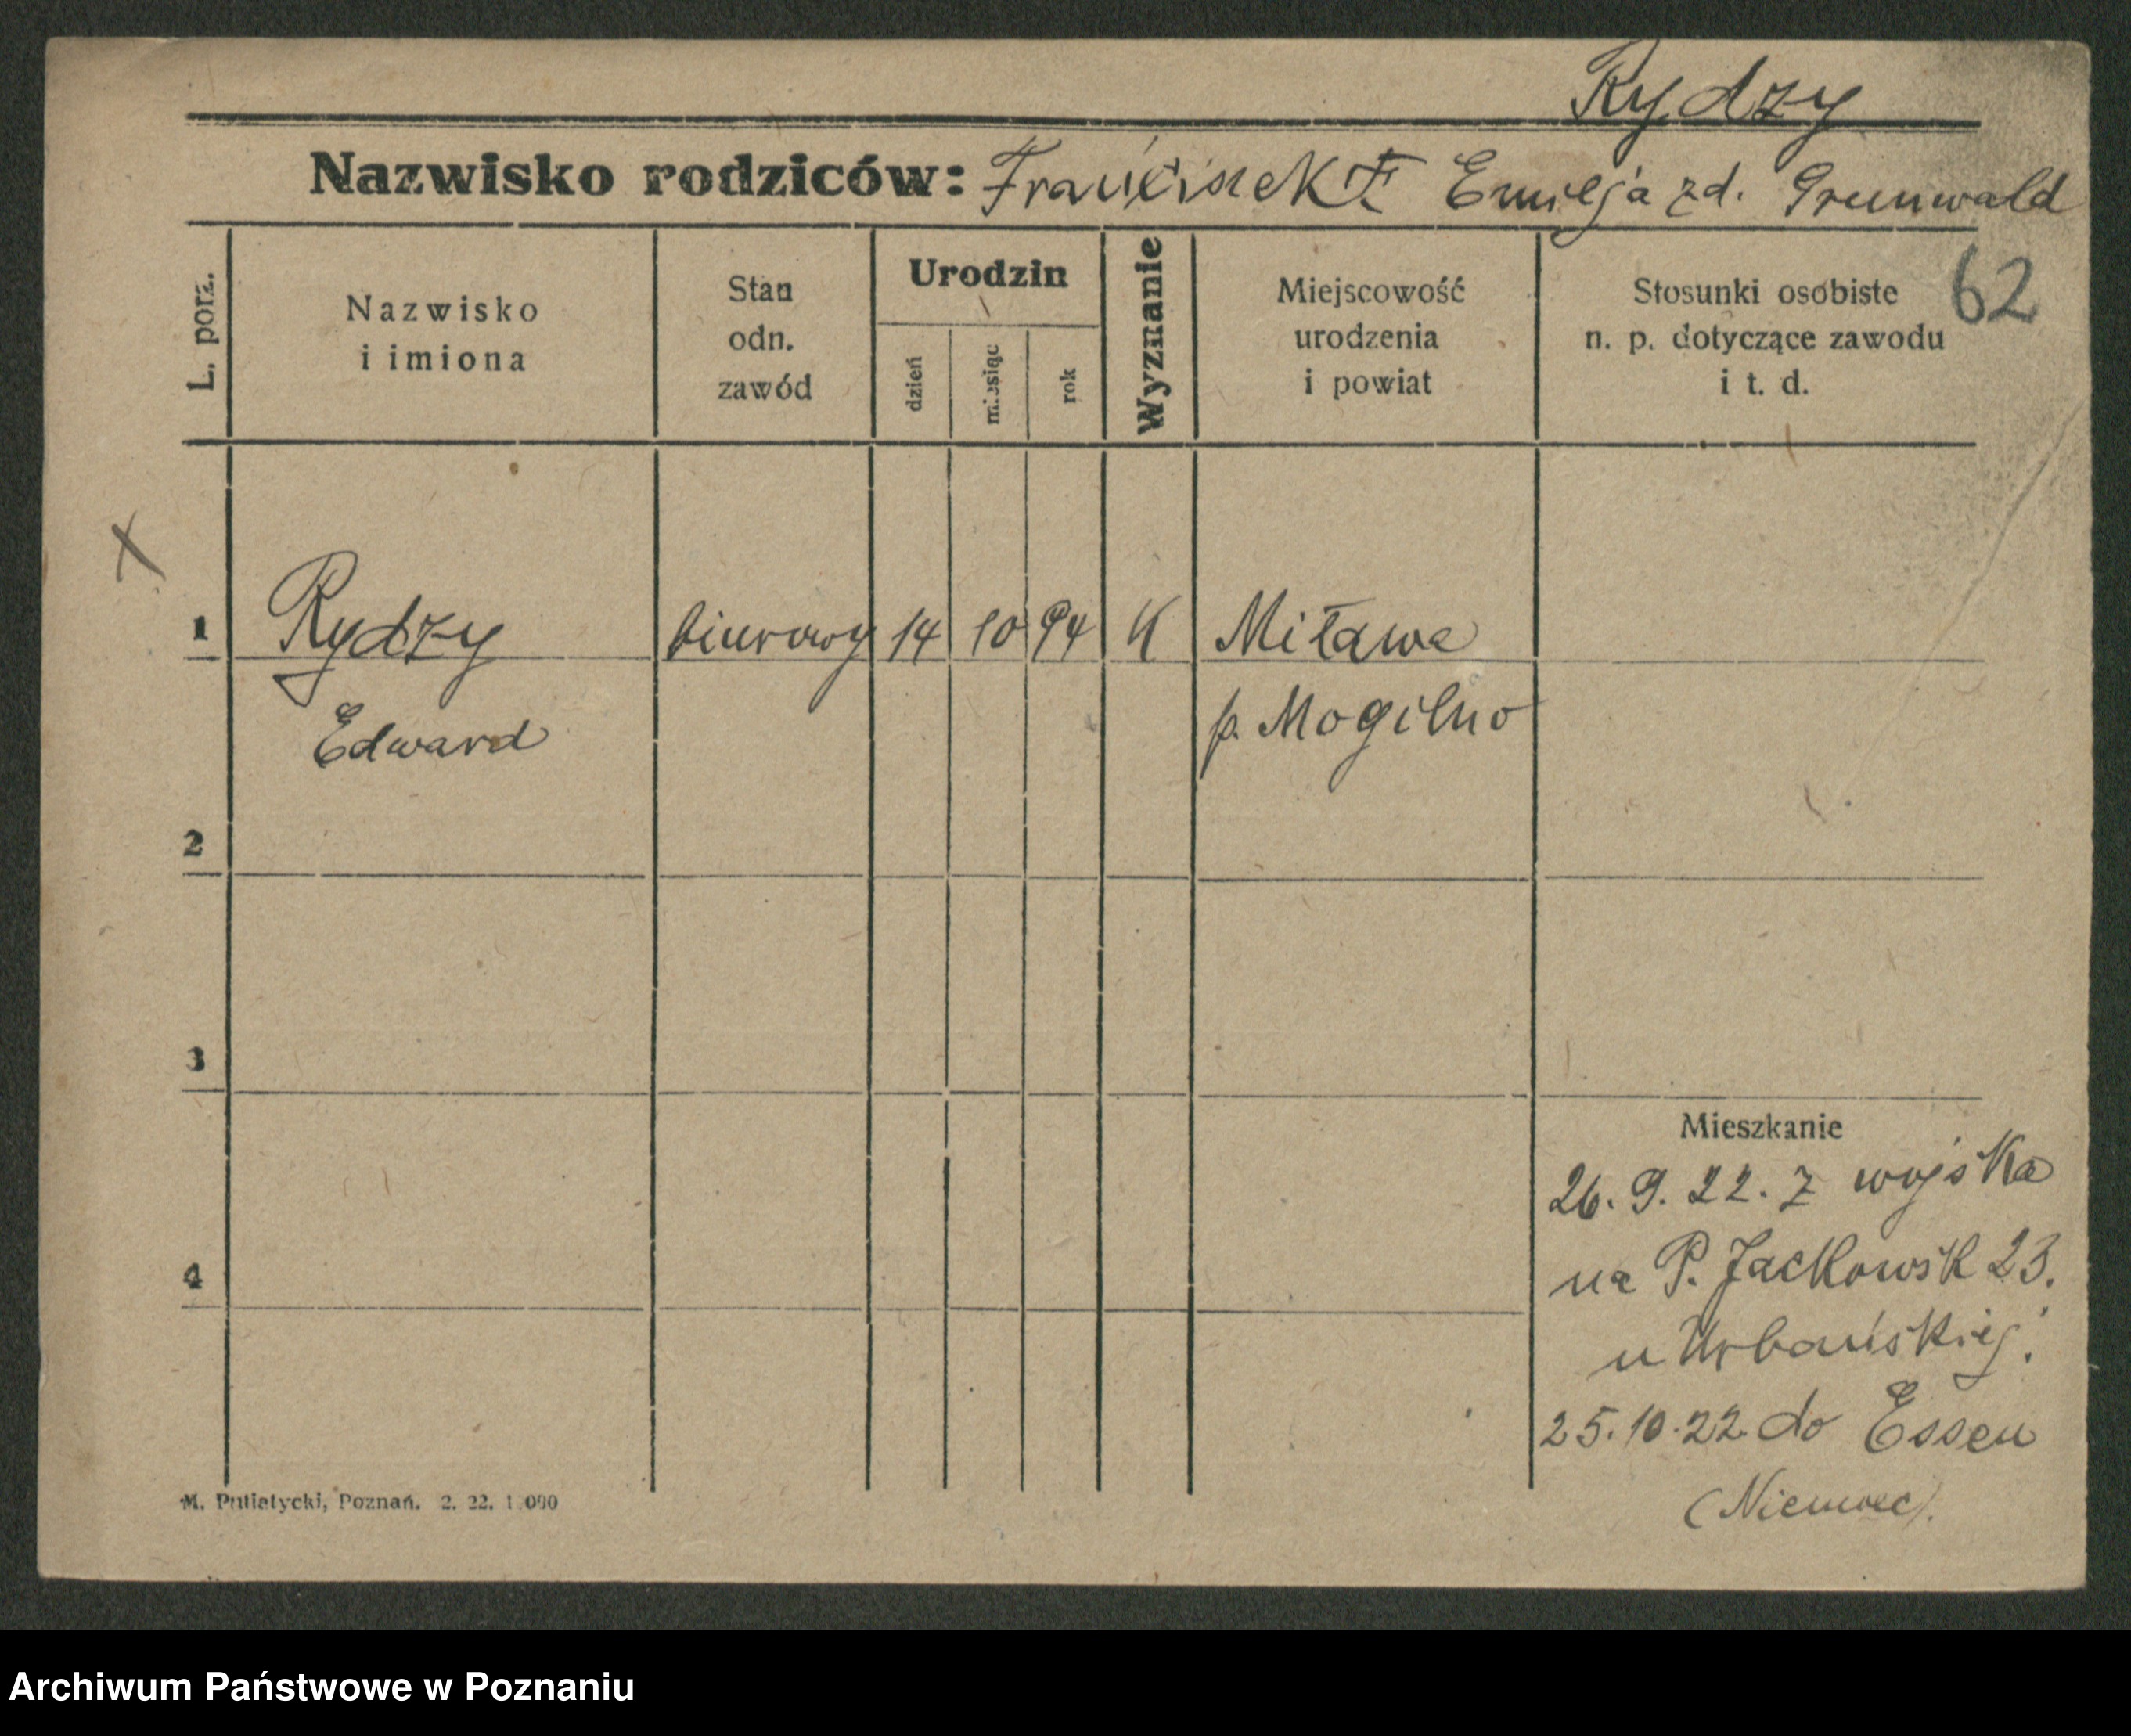 Rydzy
Nazwisko rodziców: Franciszek † Emilja zd. Grunwald
62
L. porz.
Nazwisko
i imiona
Stan
odn.
zawód
Urodzin
dzień
miesiąc
rok
Wyznanie
Miejscowość
urodzenia
i powiat
Stosunki osobiste
n. p. dotyczące zawodu
i t. d.
X
1 Rydzy biurowy 14 10 94 K Miława
Edward p. Mogilno
2
3
4
Mieszkanie
26. 9. 22. z wojska
na P. Jackowsk 23.
u Urbańskiej.
25. 10. 22. do Essen
(Niemcec).
M. Putiatycki, Poznań. 2. 22. 1 000
Archiwum Państwowe w Poznaniu